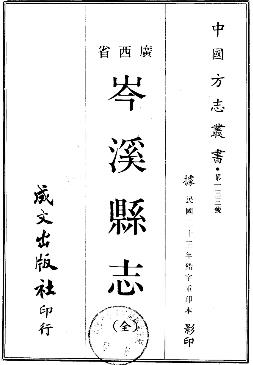 中國方志叢書·第一三三號
據民國二十三年鉛字重印本影印
廣西省
岑溪縣志
（全）
成文出版社印行